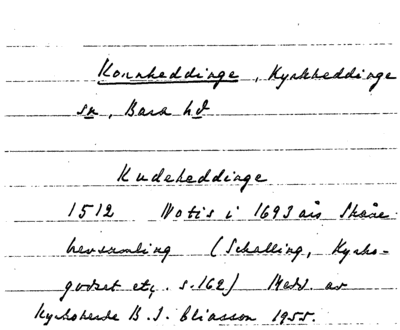 Kornheddinge, Kyrkheddinge
sn, Bara hd
Kudeheddinge
1512 Notis i 1693 års Skåne-
bevarsamling (Schalling, Kyrko-
godset etc, s.162) Medd. av
Kyrkoherde B. I. Eliasson 1955.